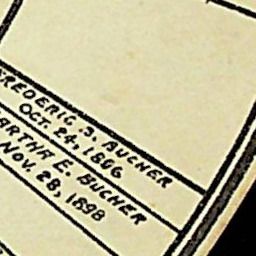 FREDERIC S. BUCHER
OCT. 24, 1886
MARTHA E. BUCHER
NOV. 28, 1898